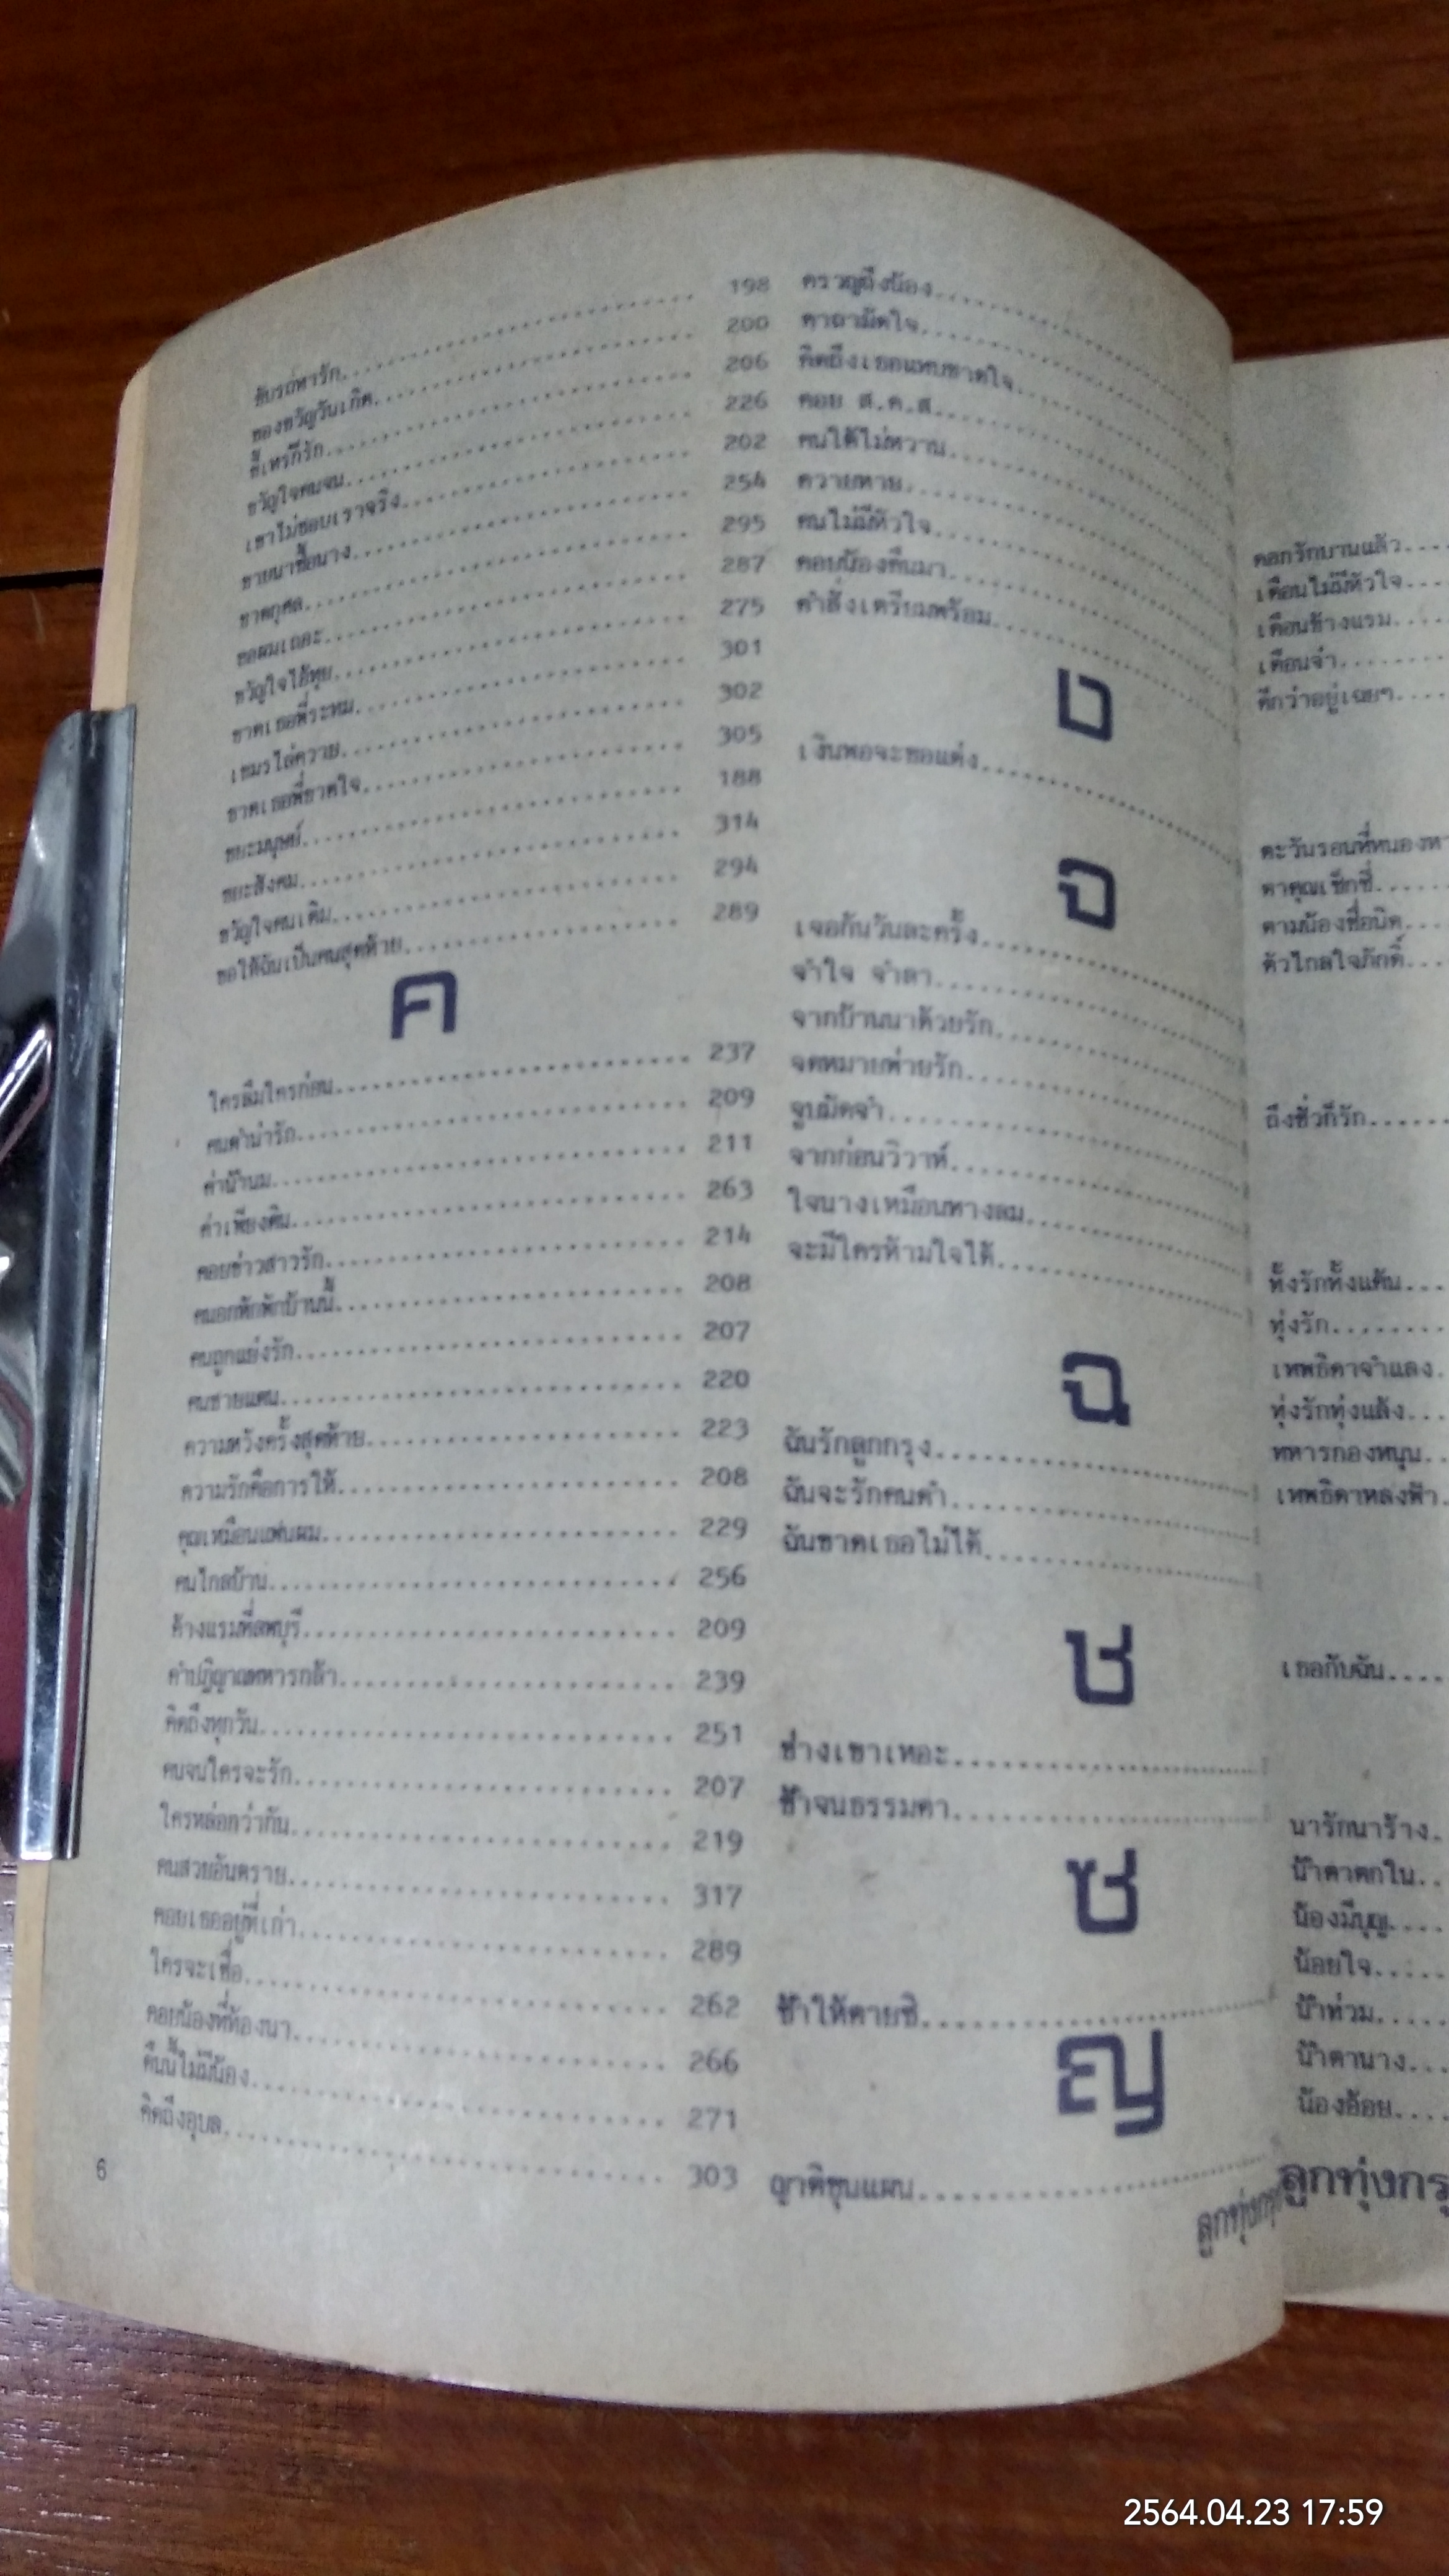 ขับรถหารัก 198
ของขวัญวันเกิด 200
ขี้เหร่ก็รัก 206
ขวัญใจคนจน 226
เขาไม่ชอบเราจริง 202
ขายนาซื้อนาง 254
ขาดกุศล 295
ขอผมเถอะ 287
ขวัญใจไอ้ทุย 275
ขาดเธอพี่ระทม 301
เขมรไล่ควาย 302
ขาดเธอพี่ขาดใจ 305
ขยะมนุษย์ 188
ขยะสังคม 314
ขวัญใจคนเดิม 294
ขอให้ฉันเป็นคนสุดท้าย 289
ค
ใครลืมใครก่อน 237
คนดำน่ารัก 209
ค่าน้ำนม 211
ค่าเพียงดิน 263
คอยข่าวสาวรัก 214
คนอกหักพักบ้านนี้ 208
คนถูกแย่งรัก 207
คนชายแดน 220
ความหวังครั้งสุดท้าย 223
ความรักคือการให้ 208
คุณเหมือนแฟนผม 229
คนไกลบ้าน 256
ค้างแรมที่ลพบุรี 209
คำปฏิญาณทหารกล้า 239
คิดถึงทุกวัน 251
คนจนใครจะรัก 207
ใครหล่อกว่ากัน 219
คนสวยอันตราย 317
คอยเธออยู่ที่เก่า 289
ใครจะเชื่อ 262
คอยน้องที่ท้องนา 266
คืนนี้ไม่มีน้อง 271
คิดถึงอุบล 303
6
ครวญถึงน้อง
คาถามัดใจ
คิดถึงเธอแทบขาดใจ
คอย ส.ค.ส.
คนใต้ไม่หวาน
ควายหาย
คนไม่มีหัวใจ
คอยน้องคืนมา
คำสั่งเตรียมพร้อม
ง
เงินพอจะขอแต่ง
จ
เจอกันวันละครั้ง
จำใจ จำลา
จากบ้านนาด้วยรัก
จดหมายพ่ายรัก
จูบมัดจำ
จากก่อนวิวาห์
ใจนางเหมือนทางลม
จะมีใครห้ามใจได้
ฉ
ฉันรักลูกกรุง
ฉันจะรักคนดำ
ฉันขาดเธอไม่ได้
ช
ช่างเขาเหอะ
ช้ำจนธรรมดา
ซ
ซ้ำให้ตายซิ
ญ
ญาติขุนแผน
ลูกทุ่งกรุ
ดอกรักบานแล้ว
เดือนไม่มีหัวใจ
เดือนข้างแรม
เดือนจ๋า
ดีกว่าอยู่เฉยๆ
ตะวันรอนที่หนองหา
ตาคุณเซ็กซี่
ตามน้องชื่อนิด
ตัวไกลใจภักดิ์
ถึงชั่วก็รัก
ทั้งรักทั้งแค้น
ทุ่งรัก
เทพธิดาจำแลง
ทุ่งรักทุ่งแล้ง
ทหารกองหนุน
เทพธิดาหลงฟ้า
เธอกับฉัน
นารักนาร้าง
น้ำตาตกใน
น้องมีบุญ
น้อยใจ
น้ำท่วม
น้ำตานาง
น้องอ้อย
ลูกทุ่งกรุ